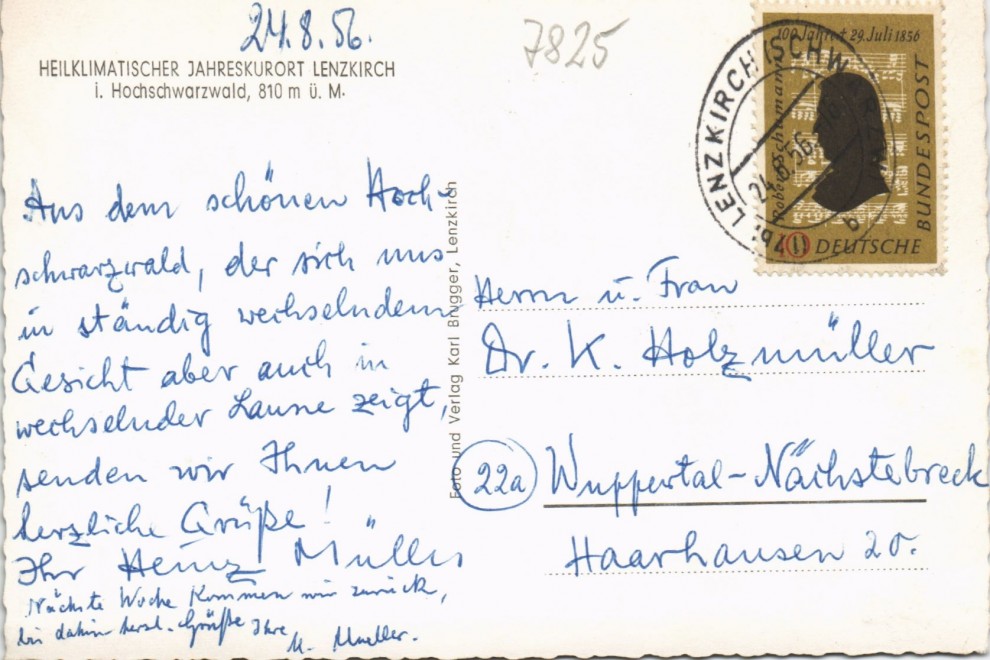 24.8.56.
7825
HEILKLIMATISCHER JAHRESKURORT LENZKIRCH
i. Hochschwarzwald, 810 m ü. M.
Aus dem schönen Hoch-
schwarzwald, der sich uns
in ständig wechselndem
Gesicht aber auch in
wechselnder Laune zeigt,
senden wir Ihnen
herzliche Grüße!
Ihr Heinz Müller
Nächste Woche kommen wir zurück,
bis dahin herzl. Grüße Ihre
M. Mueller.
Foto und Verlag Karl Brugger, Lenzkirch
100 Jahre † 29. Juli 1856
Robert Schumann
10 DEUTSCHE
BUNDESPOST
(17b) LENZKIRCH (SCHW
24.8.56
b
Herrn u. Frau
Dr. K. Holzmüller
22a Wuppertal-Nächstebreck
Haarhausen 20.